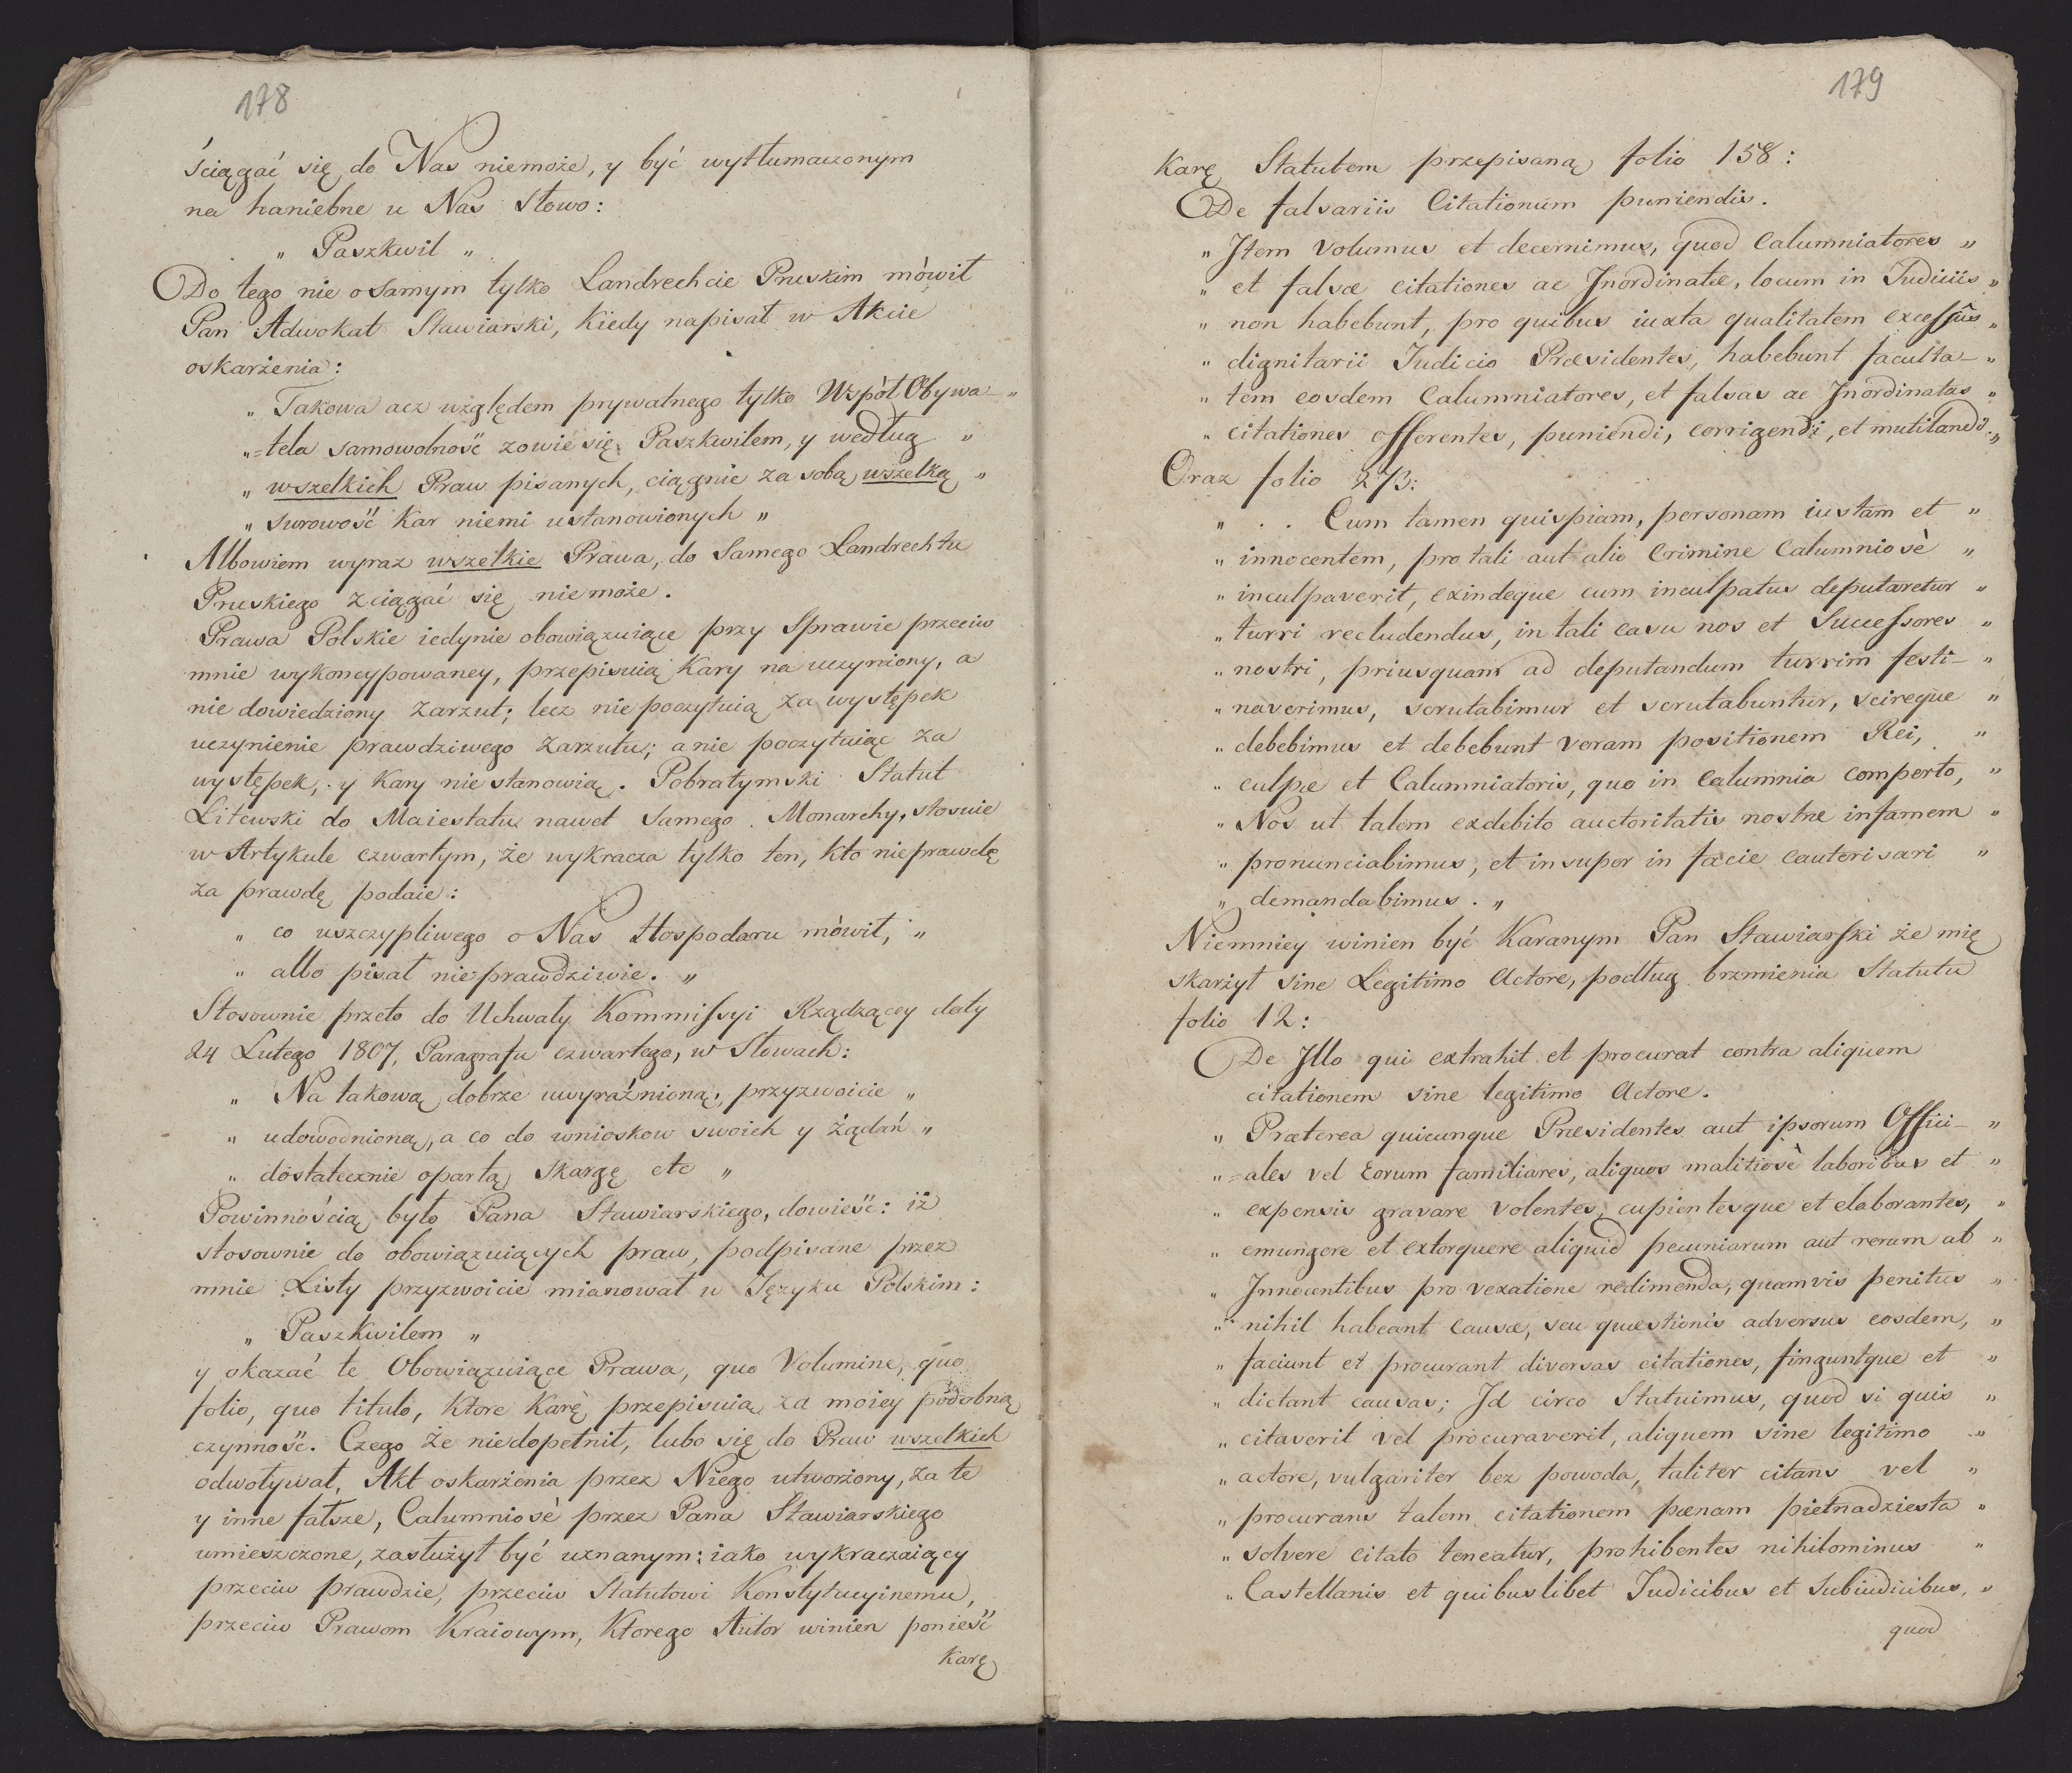 178
ściągać się do Nas niemoże, y być wytłumaczonym
na haniebne u Nas Słowo:
„ Paszkwil „
Do tego nie o Samym tylko Landrechcie Pruskim mówił
Pan Adwokat Stawiarski, Kiedy napisał w Akcie
oskarżenia:
„ Takowa acz względem prywatnego tylko Współ Obywa- „
„ =tela samowolność zowie się Paszkwilem, y według „
„ wszelkich Praw pisanych, ciągnie za sobą wszelką „
„ surowość Kar niemi ustanowionych „
Albowiem wyraz wszelkie Prawa, do Samego Landrechtu
Pruskiego zciągać się niemoże.
Prawa Polskie iedynie obowiązuiące przy Sprawie przeciw
mnie wykoncypowaney, przepisuią Kary na uczyniony, a
nie dowiedziony Zarzut; lecz nie poczytuią za występek
uczynienie prawdziwego Zarzutu; a nie poczytuiąc za
występek, y Kary nie stanowią. Pobratymski Statut
Litewski do Maiestatu nawet Samego Monarchy, stosuie
w Artykule czwartym, że wykracza tylko ten, Kto nieprawdę
za prawdę podaie:
„ co uszczypliwego o Nas Hospodaru mówił, „
„ albo pisał nieprawdziwie. „
Stosownie przeto do Uchwały Kommissyi Rządzącey daty
24 Lutego 1807, Paragrafu czwartego, w Słowach:
„ Na takową dobrze uwyraźnioną, przyzwoicie „
„ udowodnioną, a co do wnioskow swoich y żądań „
„ dostatecznie opartą Skargę etc „
Powinnością było Pana Stawiarskiego, dowieść: iż
stosownie do obowiązuiących praw, podpisane przez
mnie Listy przyzwoicie mianował w Języku Polskim:
„ Paszkwilem „
y okazać te Obowiązuiące Prawa, quo Volumine, quo
folio, quo titulo, Ktore Karę przepisuią za moiey podobną
czynność. Czego że niedopełnił, lubo się do Praw wszelkich
odwoływał, Akt oskarżenia przez Niego utworzony, za te
y inne fałsze, Calumniosè przez Pana Stawiarskiego
umieszczone, zasłużył być uznanym: iako wykraczaiący
przeciw prawdzie, przeciw Statutowi Konstytucyinemu,
przeciw Prawom Kraiowym, Ktorego Autor winien ponieść
Karę
179
Karę Statutem przepisaną folio 158:
De falsariis Citationum puniendis.
„ Item volumus et decernimus, quod Calumniatores „
„ et falsæ citationes ac Inordinatæ, locum in Judiciis „
„ non habebunt, pro quibus iuxta qualitatem excessûs „
„ dignitarii Judicio Præsidentes, habebunt faculta- „
„ tem eosdem Calumniatores, et falsas ac Inordinatas „
„ citationes offerentes, puniendi, corrigendi, et mutilandi. „
Oraz folio 273:
„ . . Cum tamen quispiam, personam iustam et „
„ innocentem, pro tali aut alio Crimine Calumniosè „
„ inculpaverit, exindeque cum inculpatus deputaretur „
„ turri recludendus, in tali casu nos et Successores „
„ nostri, priusquam ad deputandum turrim festi- „
„ naverimus, scrutabimur et scrutabuntur, scireque „
„ debebimus et debebunt veram positionem Rei, „
„ culpæ et Calumniatoris, quo in Calumnia comperto, „
„ Nos ut talem exdebito auctoritatis nostræ infamem „
„ pronunciabimus, et insuper in facie cauterisari „
„ demandabimus. „
Niemniey winien być Karanym Pan Stawiarski że mię
skarżył sine Legitimo Actore, podług brzmienia Statutu
folio 12:
De Illo qui extrahit et procurat contra aliquem
citationem sine legitimo Actore.
„ Præterea quicunque Præsidentes aut ipsorum Offici- „
„ =ales vel Eorum familiares, aliquos malitiosè laboribus et „
„ expensis gravare volentes, cupientesque et elaborantes, „
„ emungere et extorquere aliquid pecuniarum aut rerum ab „
„ Innocentibus pro vexatione redimenda, quamvis penitus „
„ nihil habeant causæ, seu quæstionis adversus eosdem, „
„ faciunt et procurant diversas citationes, finguntque et „
„ dictant causas; Id circo Statuimus, quod si quis „
„ citaverit vel procuraverit, aliquem sine legitimo „
„ actore, vulgariter bez powoda, taliter citans vel „
„ procurans talem citationem pœnam piętnadziesta „
„ solvere citato teneatur, prohibentes nihilominus „
„ Castellanis et quibuslibet Judicibus et Subiudicibus, „
quod